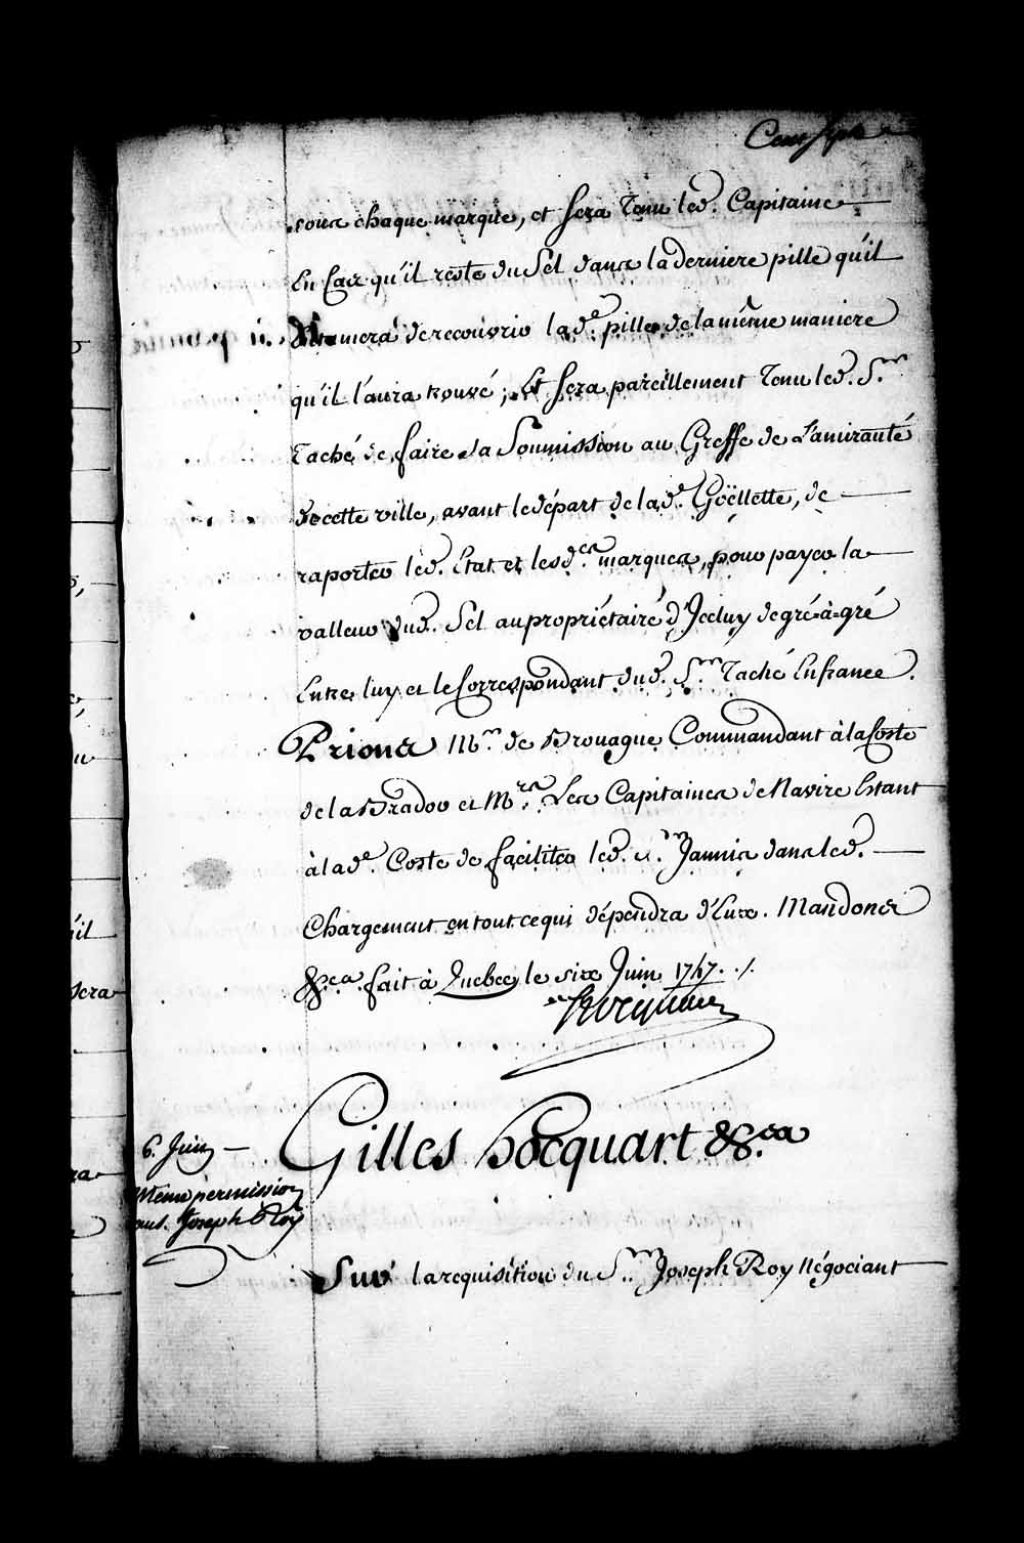 Cent sept
sous chaque marque, et Sera Tenu led. Capitaine
En Cas qu'il reste du Sel dans la derniere pille qu'il
Entamera de recouvrir lade. pille de la même maniere
qu'il l'aura trouvé; Et Sera pareillement Tenu led. Sr.
Taché de faire sa Soumission au Greffe de L'amirauté
de cette ville, avant le départ de lade. Goëllette, de
raporter led. Etat et lesdes. marques, pour payer la
valleur dud. Sel au propriétaire d'Jceluy de gré-à-gré
Entre luy et le Correspondant dud. Sr. Taché En france.
Prions Mr. de Brouague Commandant à la Coste
de la Brador et Mrs. Les Capitaines de Navire Estant
à lade. Coste de faciliter led. Sr. Jannis dans led.
Chargement en tout ce qui dépendra d'Eux. Mandons
&ca. fait à Quebec, le six Juin 1747. ./.
Hocquart
Gilles Hocquart &ca.
6. Juin
Même permission
au S. Joseph Roy
Sur la requisition du Sr. Joseph Roy Négociant